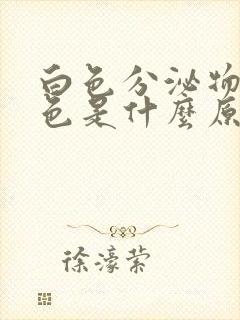 白色分泌物
色是什麼原
徐濠萦